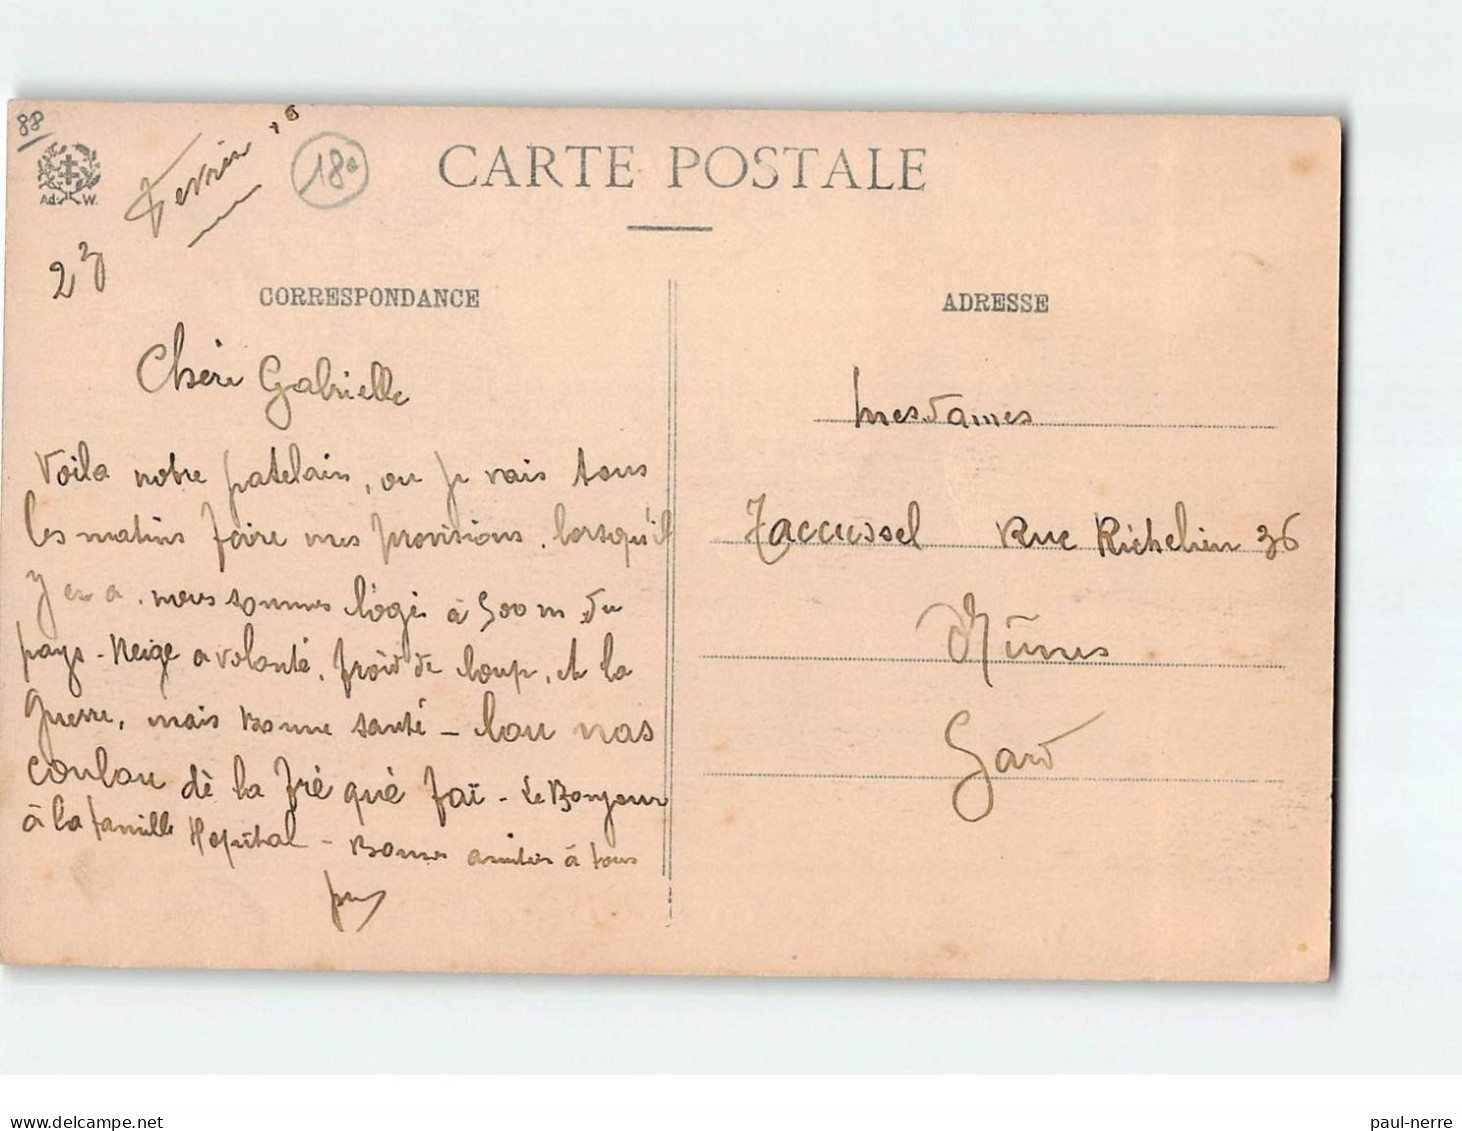 88
Ad. W.
23 Fevrier
18e
CARTE POSTALE
CORRESPONDANCE
ADRESSE
Chère Gabrielle
Voila notre patelain, ou je vais tous
les matins faire mes provisions, lorsqu'il
y en a. nous sommes logé à 500 m du
pays - Neige a volonté, froid de loup, et la
guerre, mais Bonne santé - lou nas
coulou dè la fré què faï - Le Bonjour
à la famille Hopital - Bonnes amitiés à tous
Mesdames
Taccussel Rue Richelieu 36
Nîmes
Gard
paul-nerre
delcampe.net